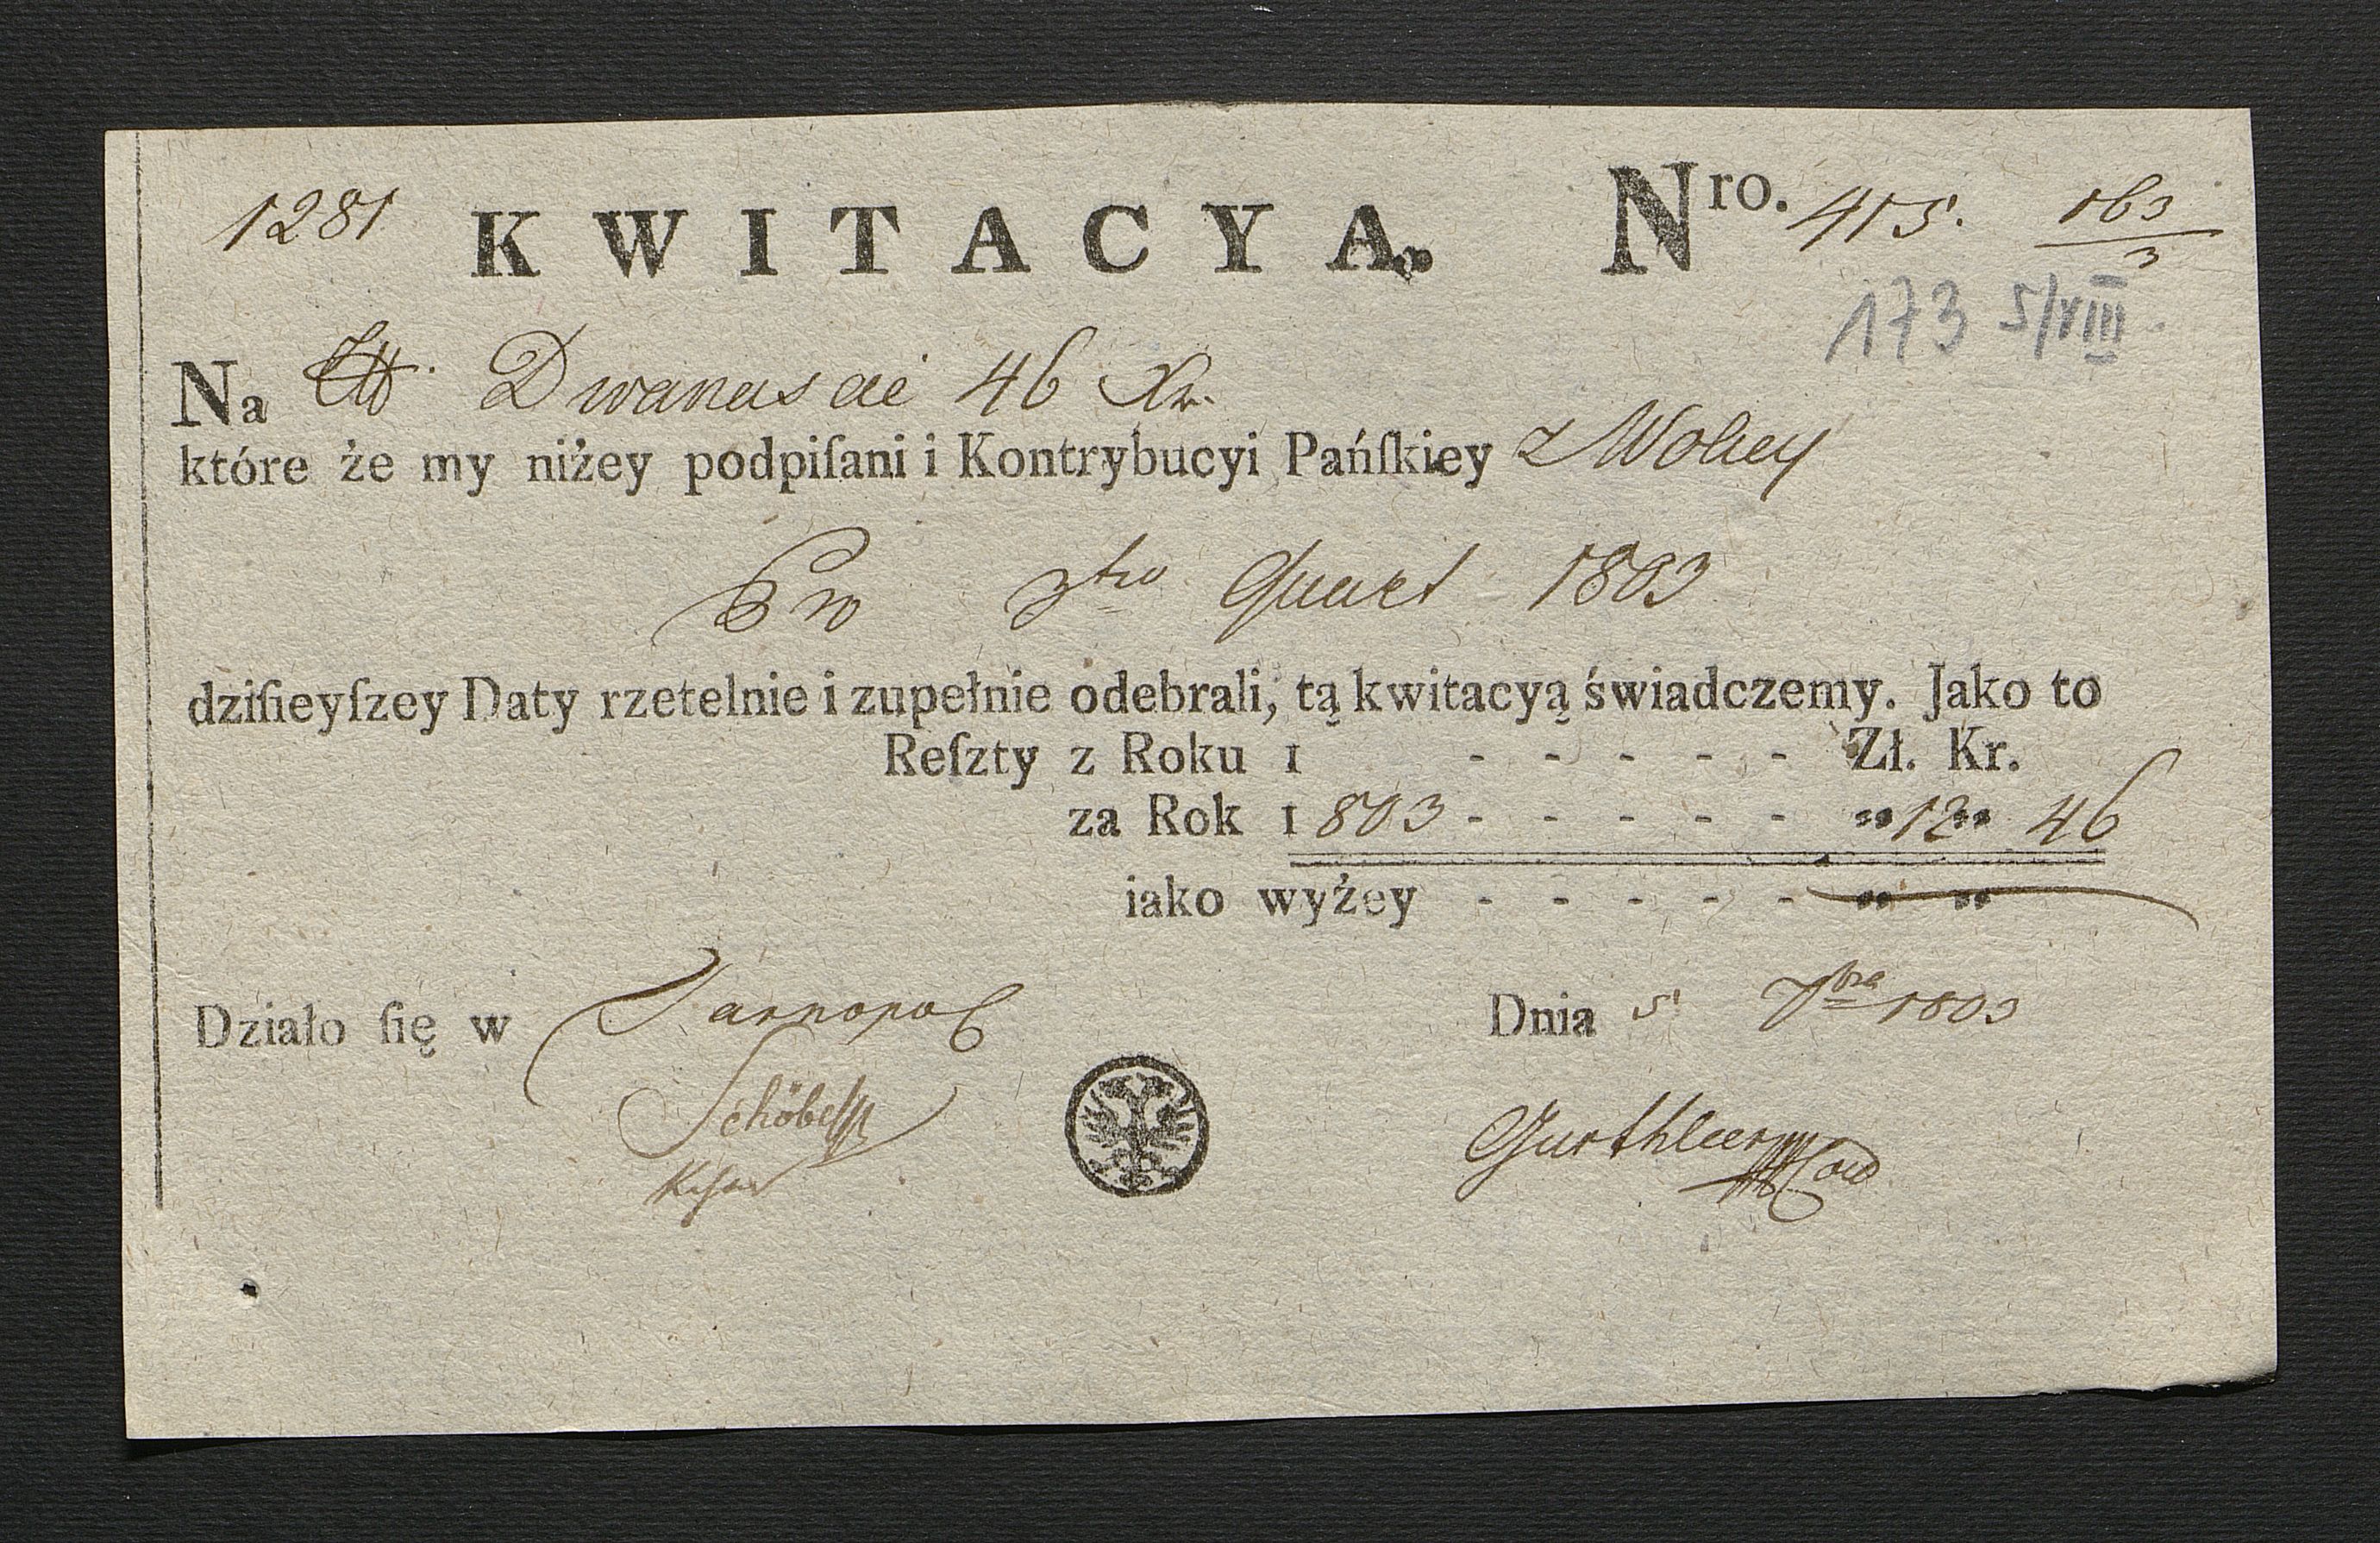 1281 KWITACYA. Nro. 415. 163/3
173 5/VIII
Na Dwanascie 46 Xr.
które że my niżey podpiſani i Kontrybucyi Pańſkiey z Woley
Pro 3tio Quart 1803
dziſieyſzey Daty rzetelnie i zupełnie odebrali, tą kwitacyą świadczemy. Jako to
Reſzty z Roku 1 - - - - - Zł. Kr.
za Rok 1803 - - - - - „ 12 „ 46
iako wyżey - - - - - „ „
Działo ſię w Tarnopol Dnia 5 7bra 1803
Schöbel